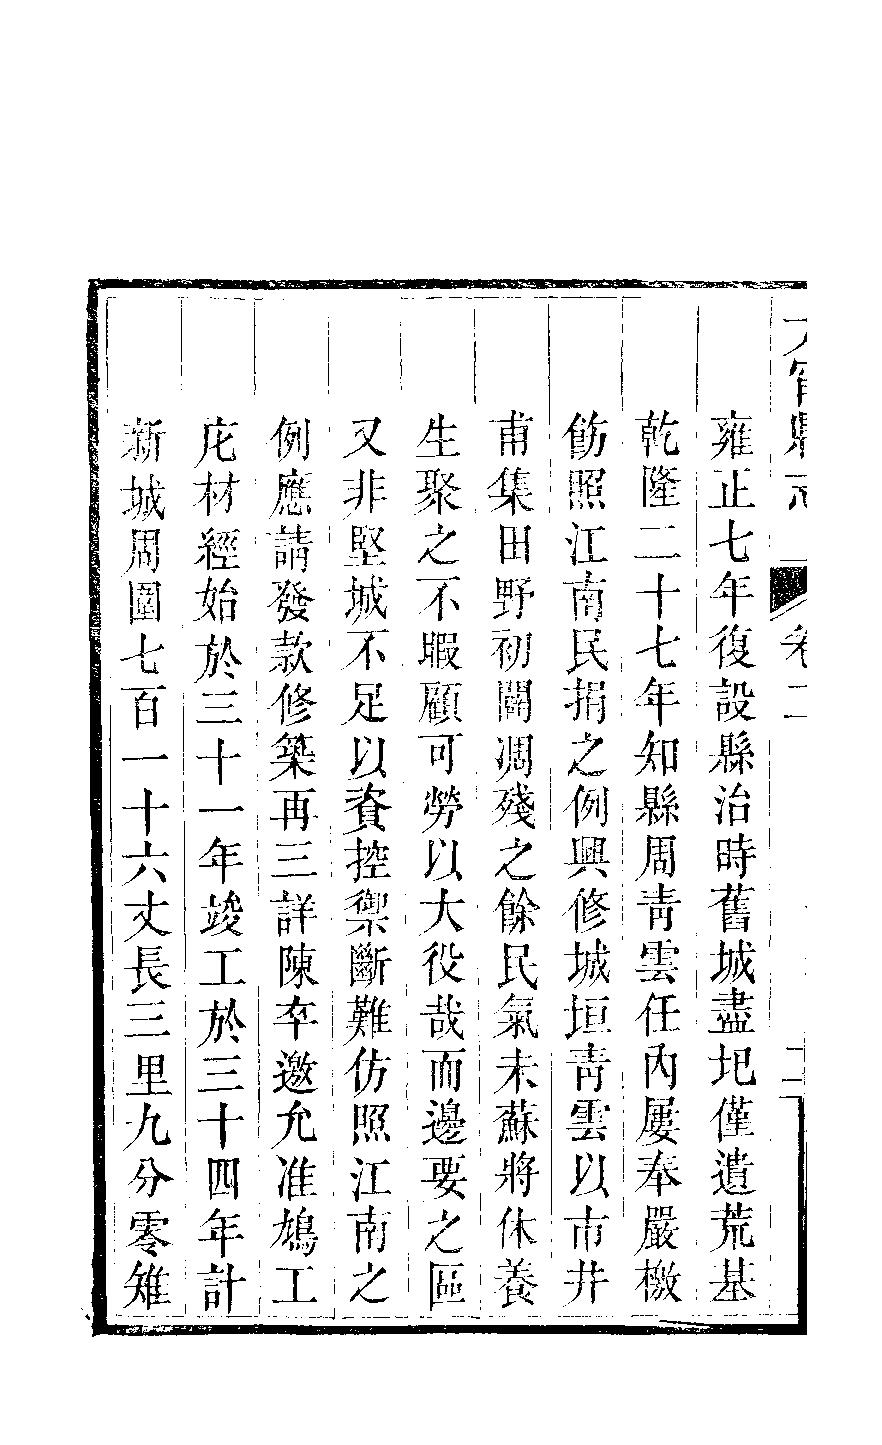 大甯縣志 卷二 二
雍正七年復設縣治時舊城盡圮僅遺荒基
乾隆二十七年知縣周靑雲任內屢奉嚴檄
飭照江南民捐之例興修城垣靑雲以市井
甫集田野初闢凋殘之餘民氣未蘇將休養
生聚之不暇顧可勞以大役哉而邊要之區
又非堅城不足以資控禦斷難仿照江南之
例應請發款修築再三詳陳卒邀允准鳩工
庀材經始於三十一年竣工於三十四年計
新城周圍七百一十六丈長三里九分零雉